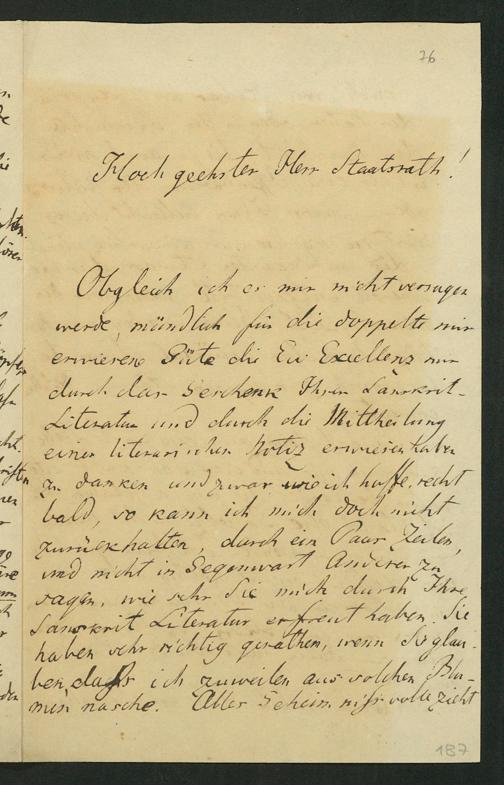 76
Hoch geehrter Herr Staatsrath!
Obgleich ich es mir nicht versagen
werde, mündlich für die doppelte mir
erwiesene Güte die Ew Excellenz mir
durch das Geschenk Ihrer Sanskrit-
Literatur und durch die Mittheilung
einer literarischen Notiz erwiesen haben
zu danken und zwar wie ich hoffe, recht
bald, so kann ich mich doch nicht
zurückhalten, durch ein Paar Zeilen,
und nicht in Gegenwart Anderer zu
sagen, wie sehr Sie mich durch Ihre
Sanskrit Literatur erfreut haben. Sie
haben sehr richtig gerathen, wenn Sie glau-
ben, daß ich zuweilen aus solchen Blu-
men nasche. Alles Geheimnißvolle zieht
187